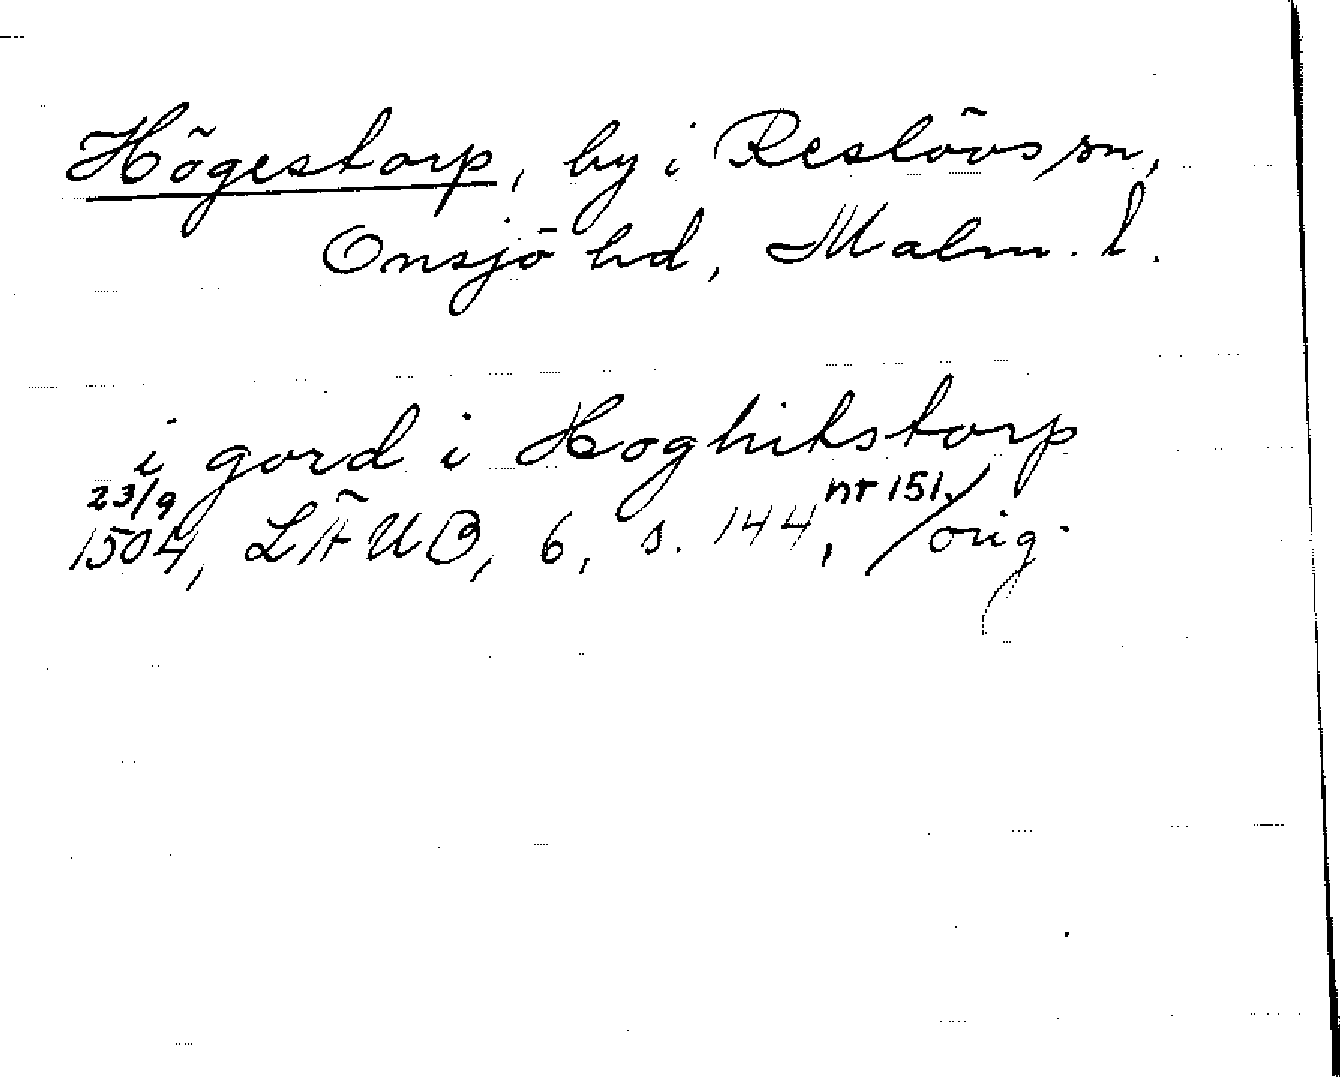 Högestorp, by i Reslövs sn,
Onsjö hd, Malm. l.
i gord i Hoghitstorp
23/9
1504, LÄUB, 6, s. 144, nr 151. / orig.